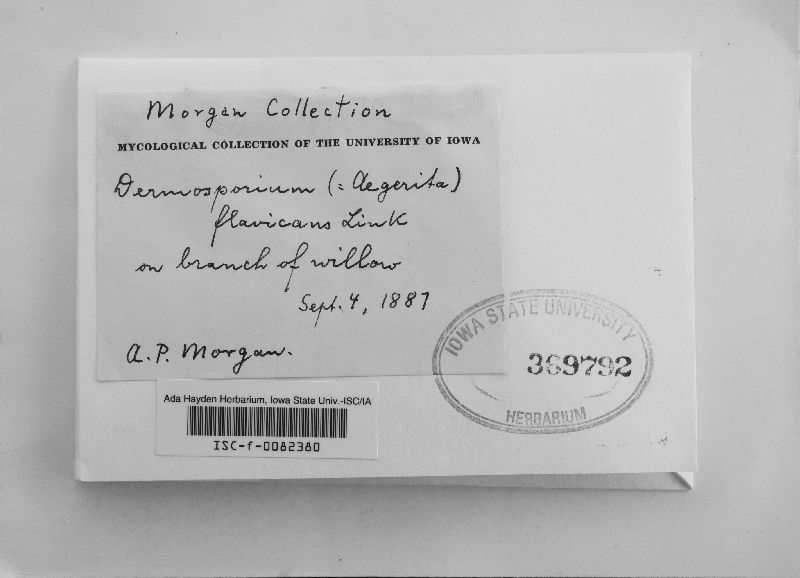 Morgan Collection
MYCOLOGICAL COLLECTION OF THE UNIVERSITY OF IOWA
Dermosporium (= Aegerita)
flavicans Link
on branch of willow
Sept. 4, 1887
A. P. Morgan.
IOWA STATE UNIVERSITY
369792
HERBARIUM
Ada Hayden Herbarium, Iowa State Univ.-ISC/IA
ISC-f-0082380